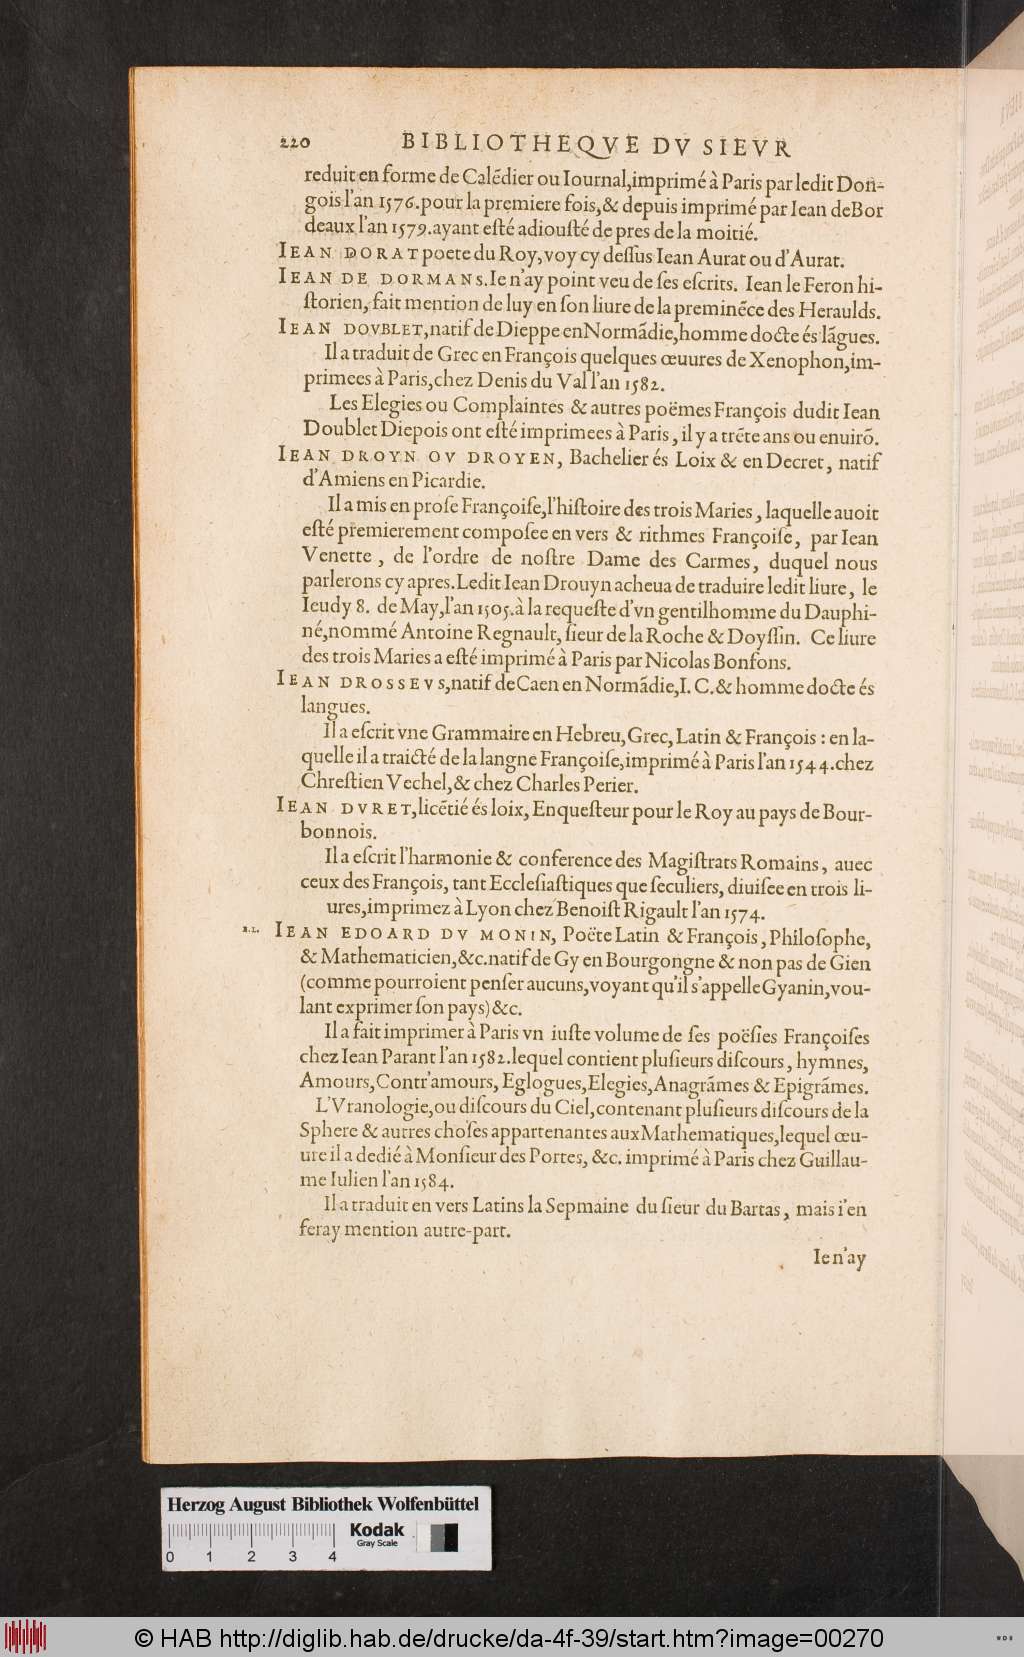 220 BIBLIOTHEQVE DV SIEVR
reduit en forme de Calẽdier ou Iournal,imprimé à Paris par ledit Don-
gois l'an 1576.pour la premiere fois,& depuis imprimé par Iean deBor
deaux l'an 1579.ayant eſté adiouſté de pres de la moitié.
IEAN DORAT poete du Roy, voy cy deſſus Iean Aurat ou d'Aurat.
IEAN DE DORMANS.Ie n'ay point veu de ſes eſcrits. Iean le Feron hi-
ſtorien, fait mention de luy en ſon liure de la preminẽce des Heraulds.
IEAN DOVBLET,natif de Dieppe en Normãdie,homme docte és lãgues.
Il a traduit de Grec en François quelques œuures de Xenophon,im-
primees à Paris,chez Denis du Val l'an 1582.
Les Elegies ou Complaintes & autres poëmes François dudit Iean
Doublet Diepois ont eſté imprimees à Paris, il y a trẽte ans ou enuirõ.
IEAN DROYN OV DROYEN, Bachelier és Loix & en Decret, natif
d'Amiens en Picardie.
Il a mis en proſe Françoiſe,l'hiſtoire des trois Maries, laquelle auoit
eſté premierement compoſee en vers & rithmes Françoiſe, par Iean
Venette, de l'ordre de noſtre Dame des Carmes, duquel nous
parlerons cy apres.Ledit Iean Drouyn acheua de traduire ledit liure, le
Ieudy 8. de May,l'an 1505.à la requeſte d'vn gentilhomme du Dauphi-
né,nommé Antoine Regnault, ſieur de la Roche & Doyſſin. Ce liure
des trois Maries a eſté imprimé à Paris par Nicolas Bonfons.
IEAN DROSSEVS,natif de Caen en Normãdie,I. C.& homme docte és
langues.
Il a eſcrit vne Grammaire en Hebreu,Grec,Latin & François : en la-
quelle il a traicté de la langne Françoiſe,imprimé à Paris l'an 1544.chez
Chreſtien Vechel,& chez Charles Perier.
IEAN DVRET,licẽtié és loix, Enqueſteur pour le Roy au pays de Bour-
bonnois.
Il a eſcrit l'harmonie & conference des Magiſtrats Romains, auec
ceux des François, tant Eccleſiaſtiques que ſeculiers, diuiſee en trois li-
ures,imprimez à Lyon chez Benoiſt Rigault l'an 1574.
IEAN EDOARD DV MONIN, Poëte Latin & François, Philoſophe,
& Mathematicien,&c.natif de Gy en Bourgongne & non pas de Gien
(comme pourroient penſer aucuns,voyant qu'il s'appelle Gyanin,vou-
lant exprimer ſon pays)&c.
Il a fait imprimer à Paris vn iuſte volume de ſes poëſies Françoiſes
chez Iean Parant l'an 1582.lequel contient pluſieurs diſcours, hymnes,
Amours,Contr'amours, Eglogues,Elegies,Anagrãmes & Epigrãmes.
L'Vranologie,ou diſcours du Ciel,contenant pluſieurs diſcours de la
Sphere & autres choſes appartenantes aux Mathematiques,lequel œu-
ure il a dedié à Monſieur des Portes, &c. imprimé à Paris chez Guillau-
me Iulien l'an 1584.
Il a traduit en vers Latins la Sepmaine du ſieur du Bartas, mais i'en
feray mention autre-part.
Ie n'ay
Herzog August Bibliothek Wolfenbüttel
0 1 2 3 4
Kodak
Gray Scale
© HAB http://diglib.hab.de/drucke/da-4f-39/start.htm?image=00270